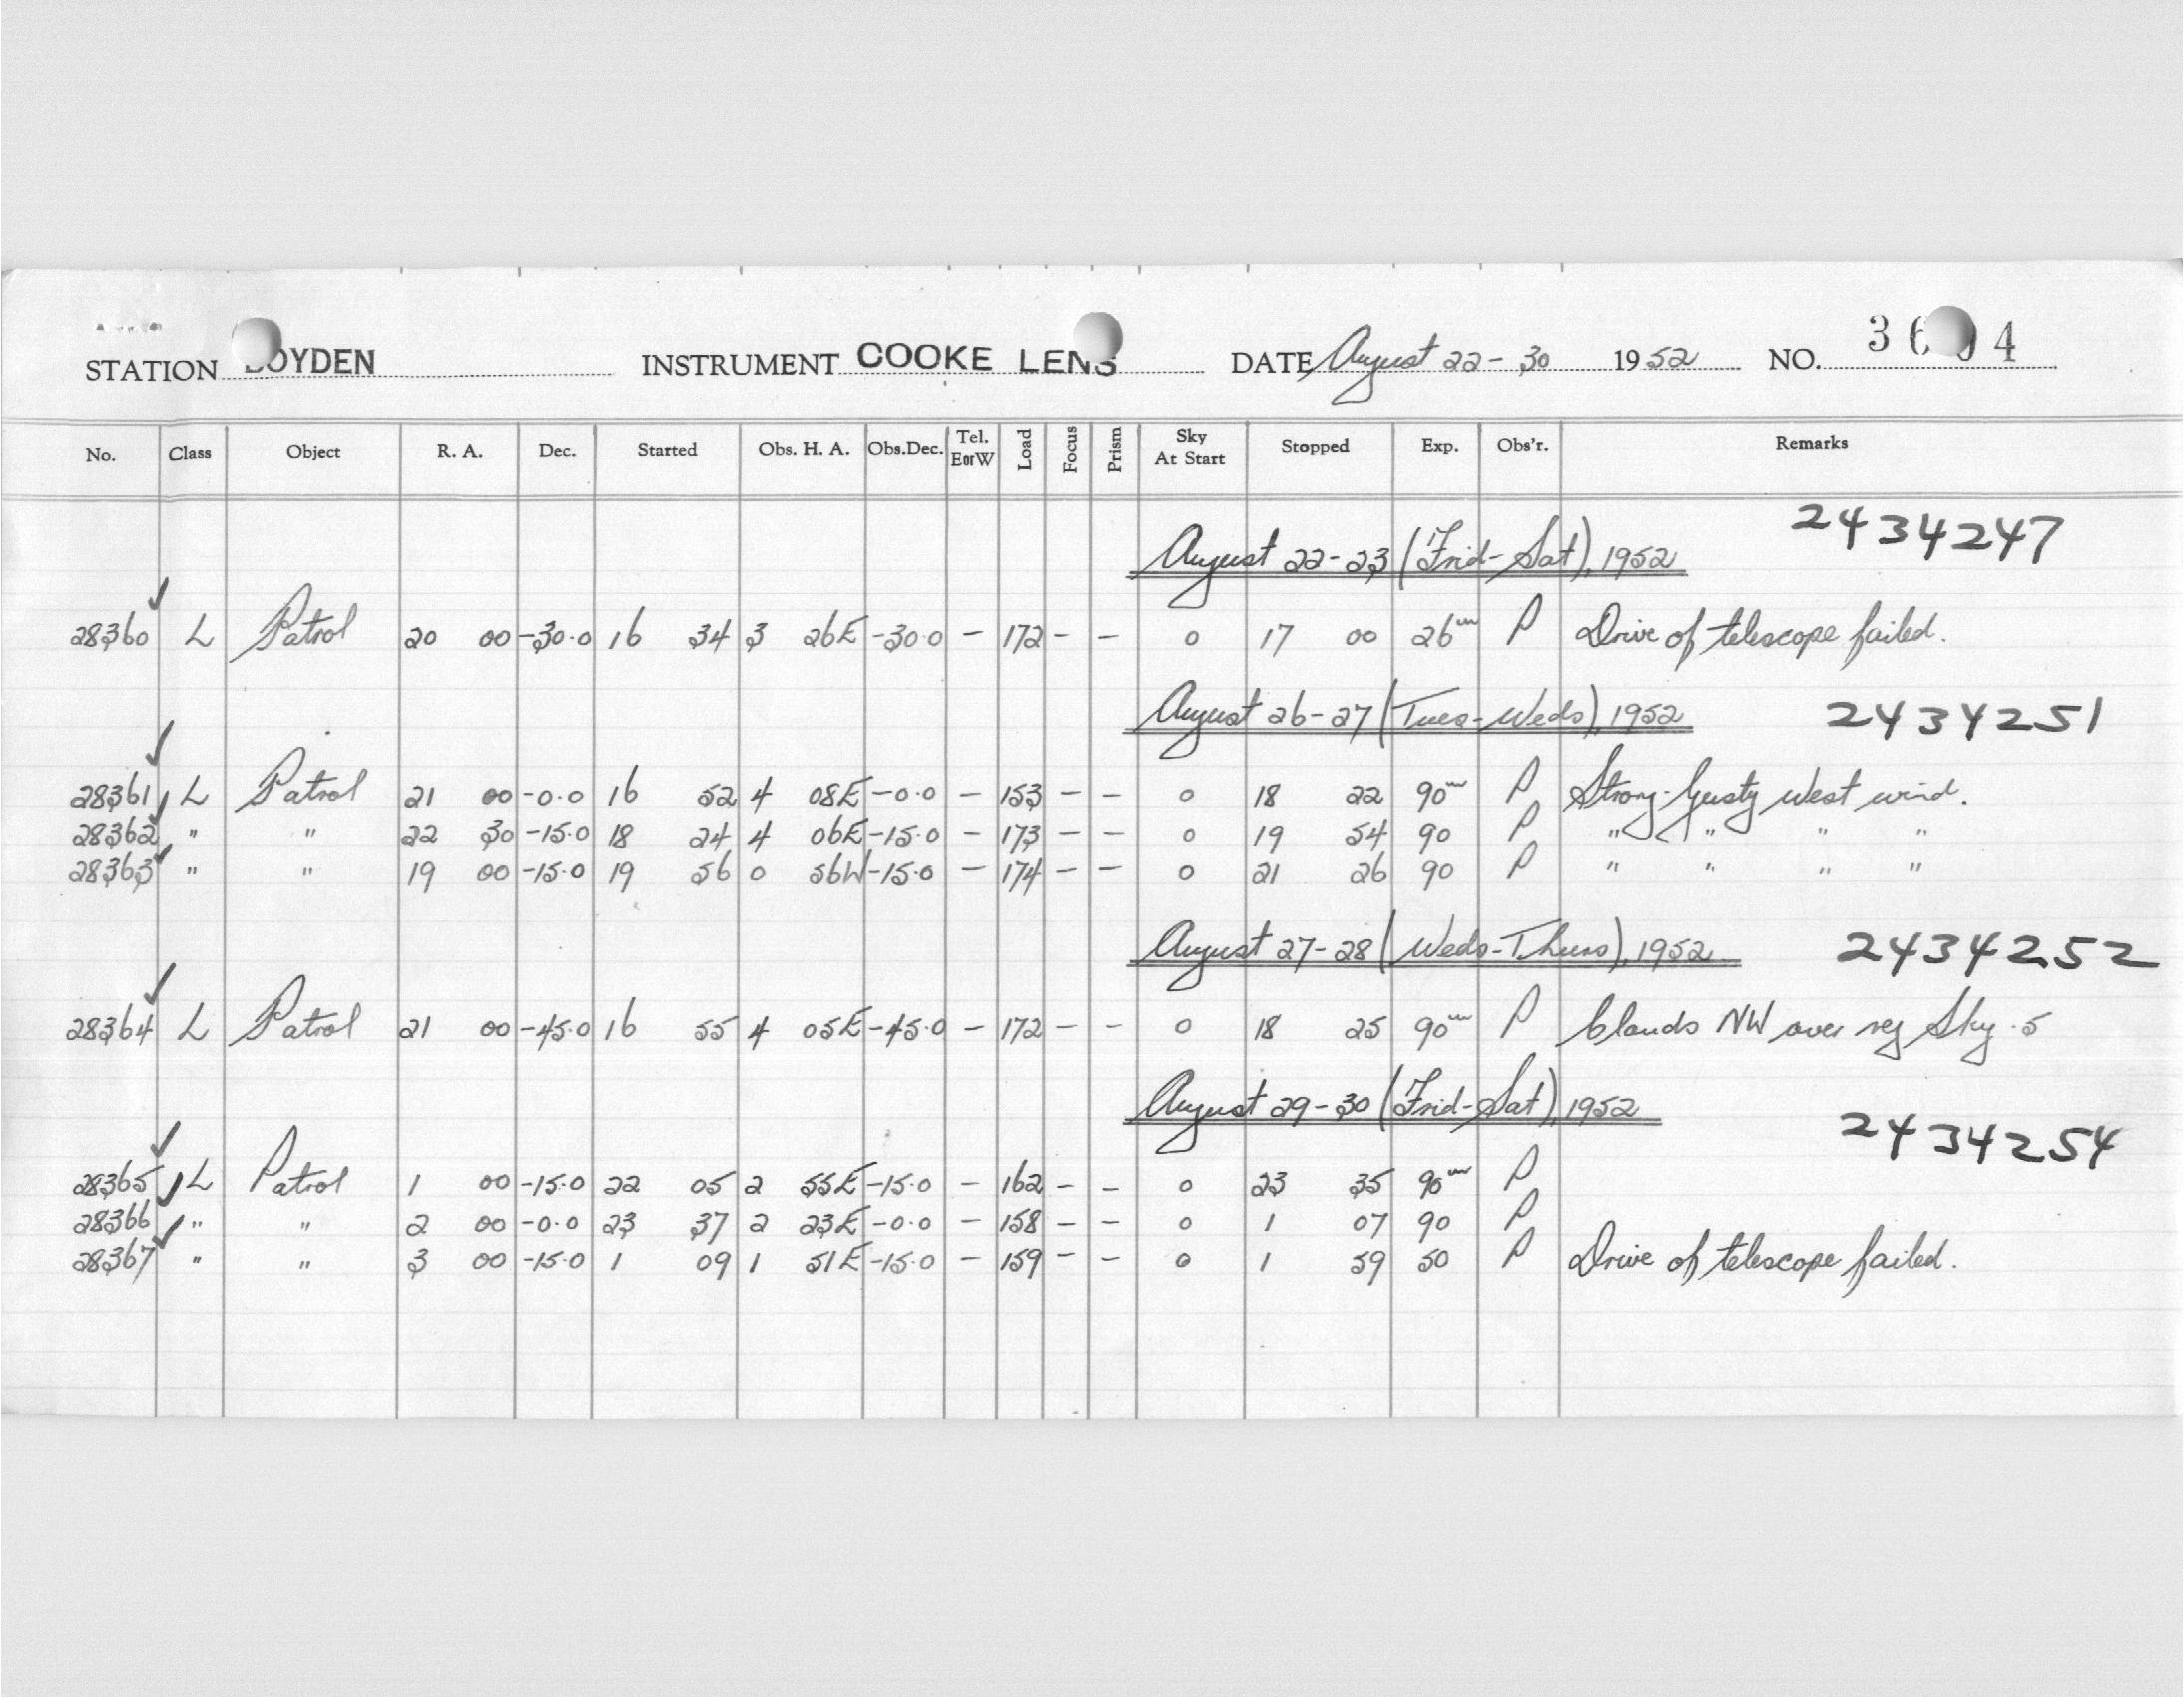 STATION BOYDEN INSTRUMENT COOKE LENS DATE August 22-30 1952 NO. 36 4
No. Class Object R. A. Dec. Started Obs. H. A. Obs.Dec. Tel. EorW Load Focus Prism Sky At Start Stopped Exp. Obs'r. Remarks
August 22-23 (Frid-Sat), 1952 2434247
28360 L Patrol 20 00 -30.0 16 34 3 26E -30.0 - 172 - - 0 17 00 26m P Drive of telescope failed.
August 26-27 (Tues-Weds), 1952 2434251
28361 L Patrol 21 00 -0.0 16 52 4 08E -0.0 - 153 - - 0 18 22 90m P Strong-Gusty West wind.
28362 " " 22 30 -15.0 18 24 4 06E -15.0 - 173 - - 0 19 54 90 P " " " "
28363 " " 19 00 -15.0 19 56 0 56W -15.0 - 174 - - 0 21 26 90 P " " " "
August 27-28 (Weds-Thurs), 1952 2434252
28364 L Patrol 21 00 -45.0 16 55 4 05E -45.0 - 172 - - 0 18 25 90m P Clouds NW over reg Sky .5
August 29-30 (Frid-Sat), 1952 2434254
28365 L Patrol 1 00 -15.0 22 05 2 55E -15.0 - 162 - - 0 23 35 90m P
28366 " " 2 00 -0.0 23 37 2 23E -0.0 - 158 - - 0 1 07 90 P
28367 " " 3 00 -15.0 1 09 1 51E -15.0 - 159 - - 0 1 59 50 P Drive of telescope failed.